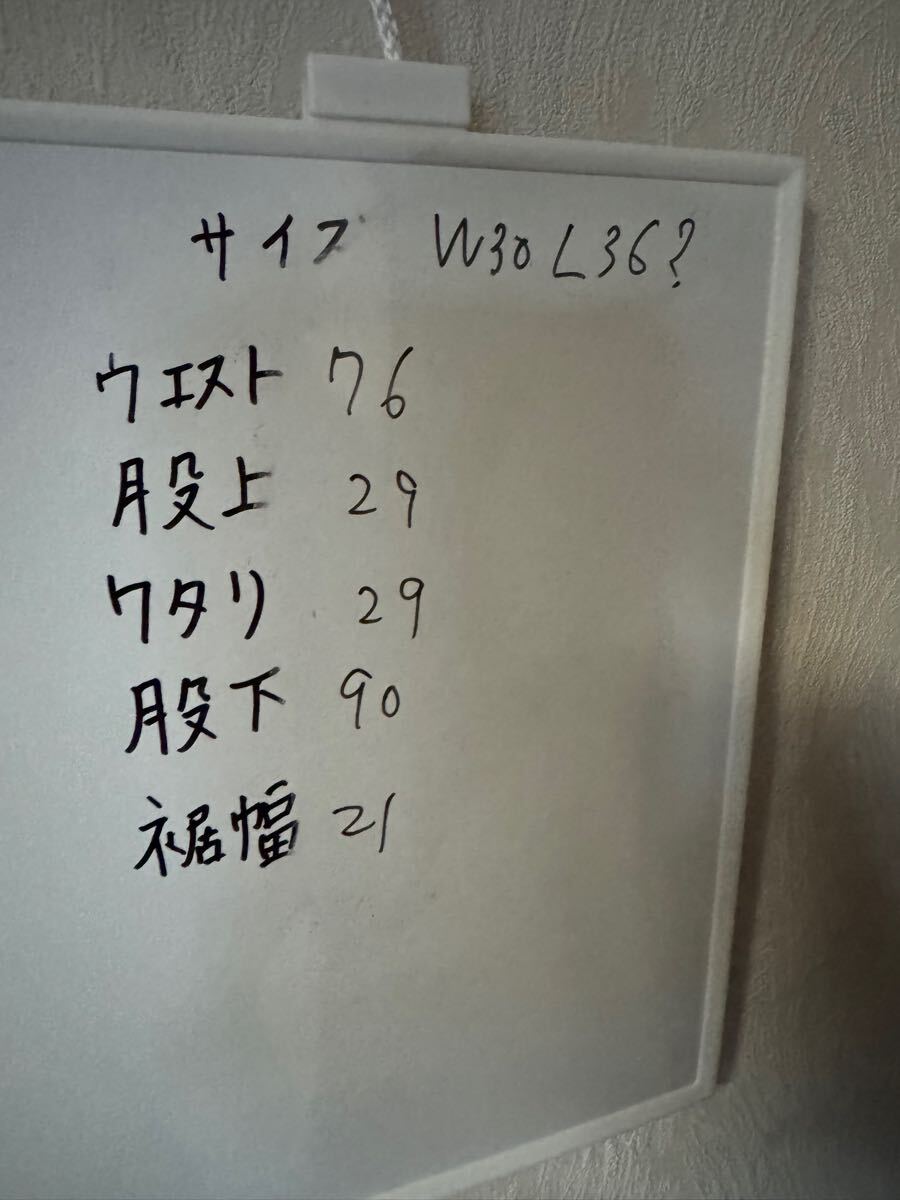 サイズ W30 L36?
ウエスト 76
股上 29
ワタリ 29
股下 90
裾幅 21